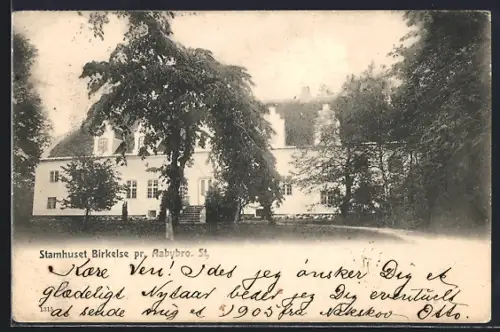 Stamhuset Birkelse pr. Aabybro. St.
Kære Ven! Ides jeg ønsker Dig et
glædeligt Nytaar beder jeg Dig eventuelt
at sende mig et 1905 fra Nakskov Otto.
1315